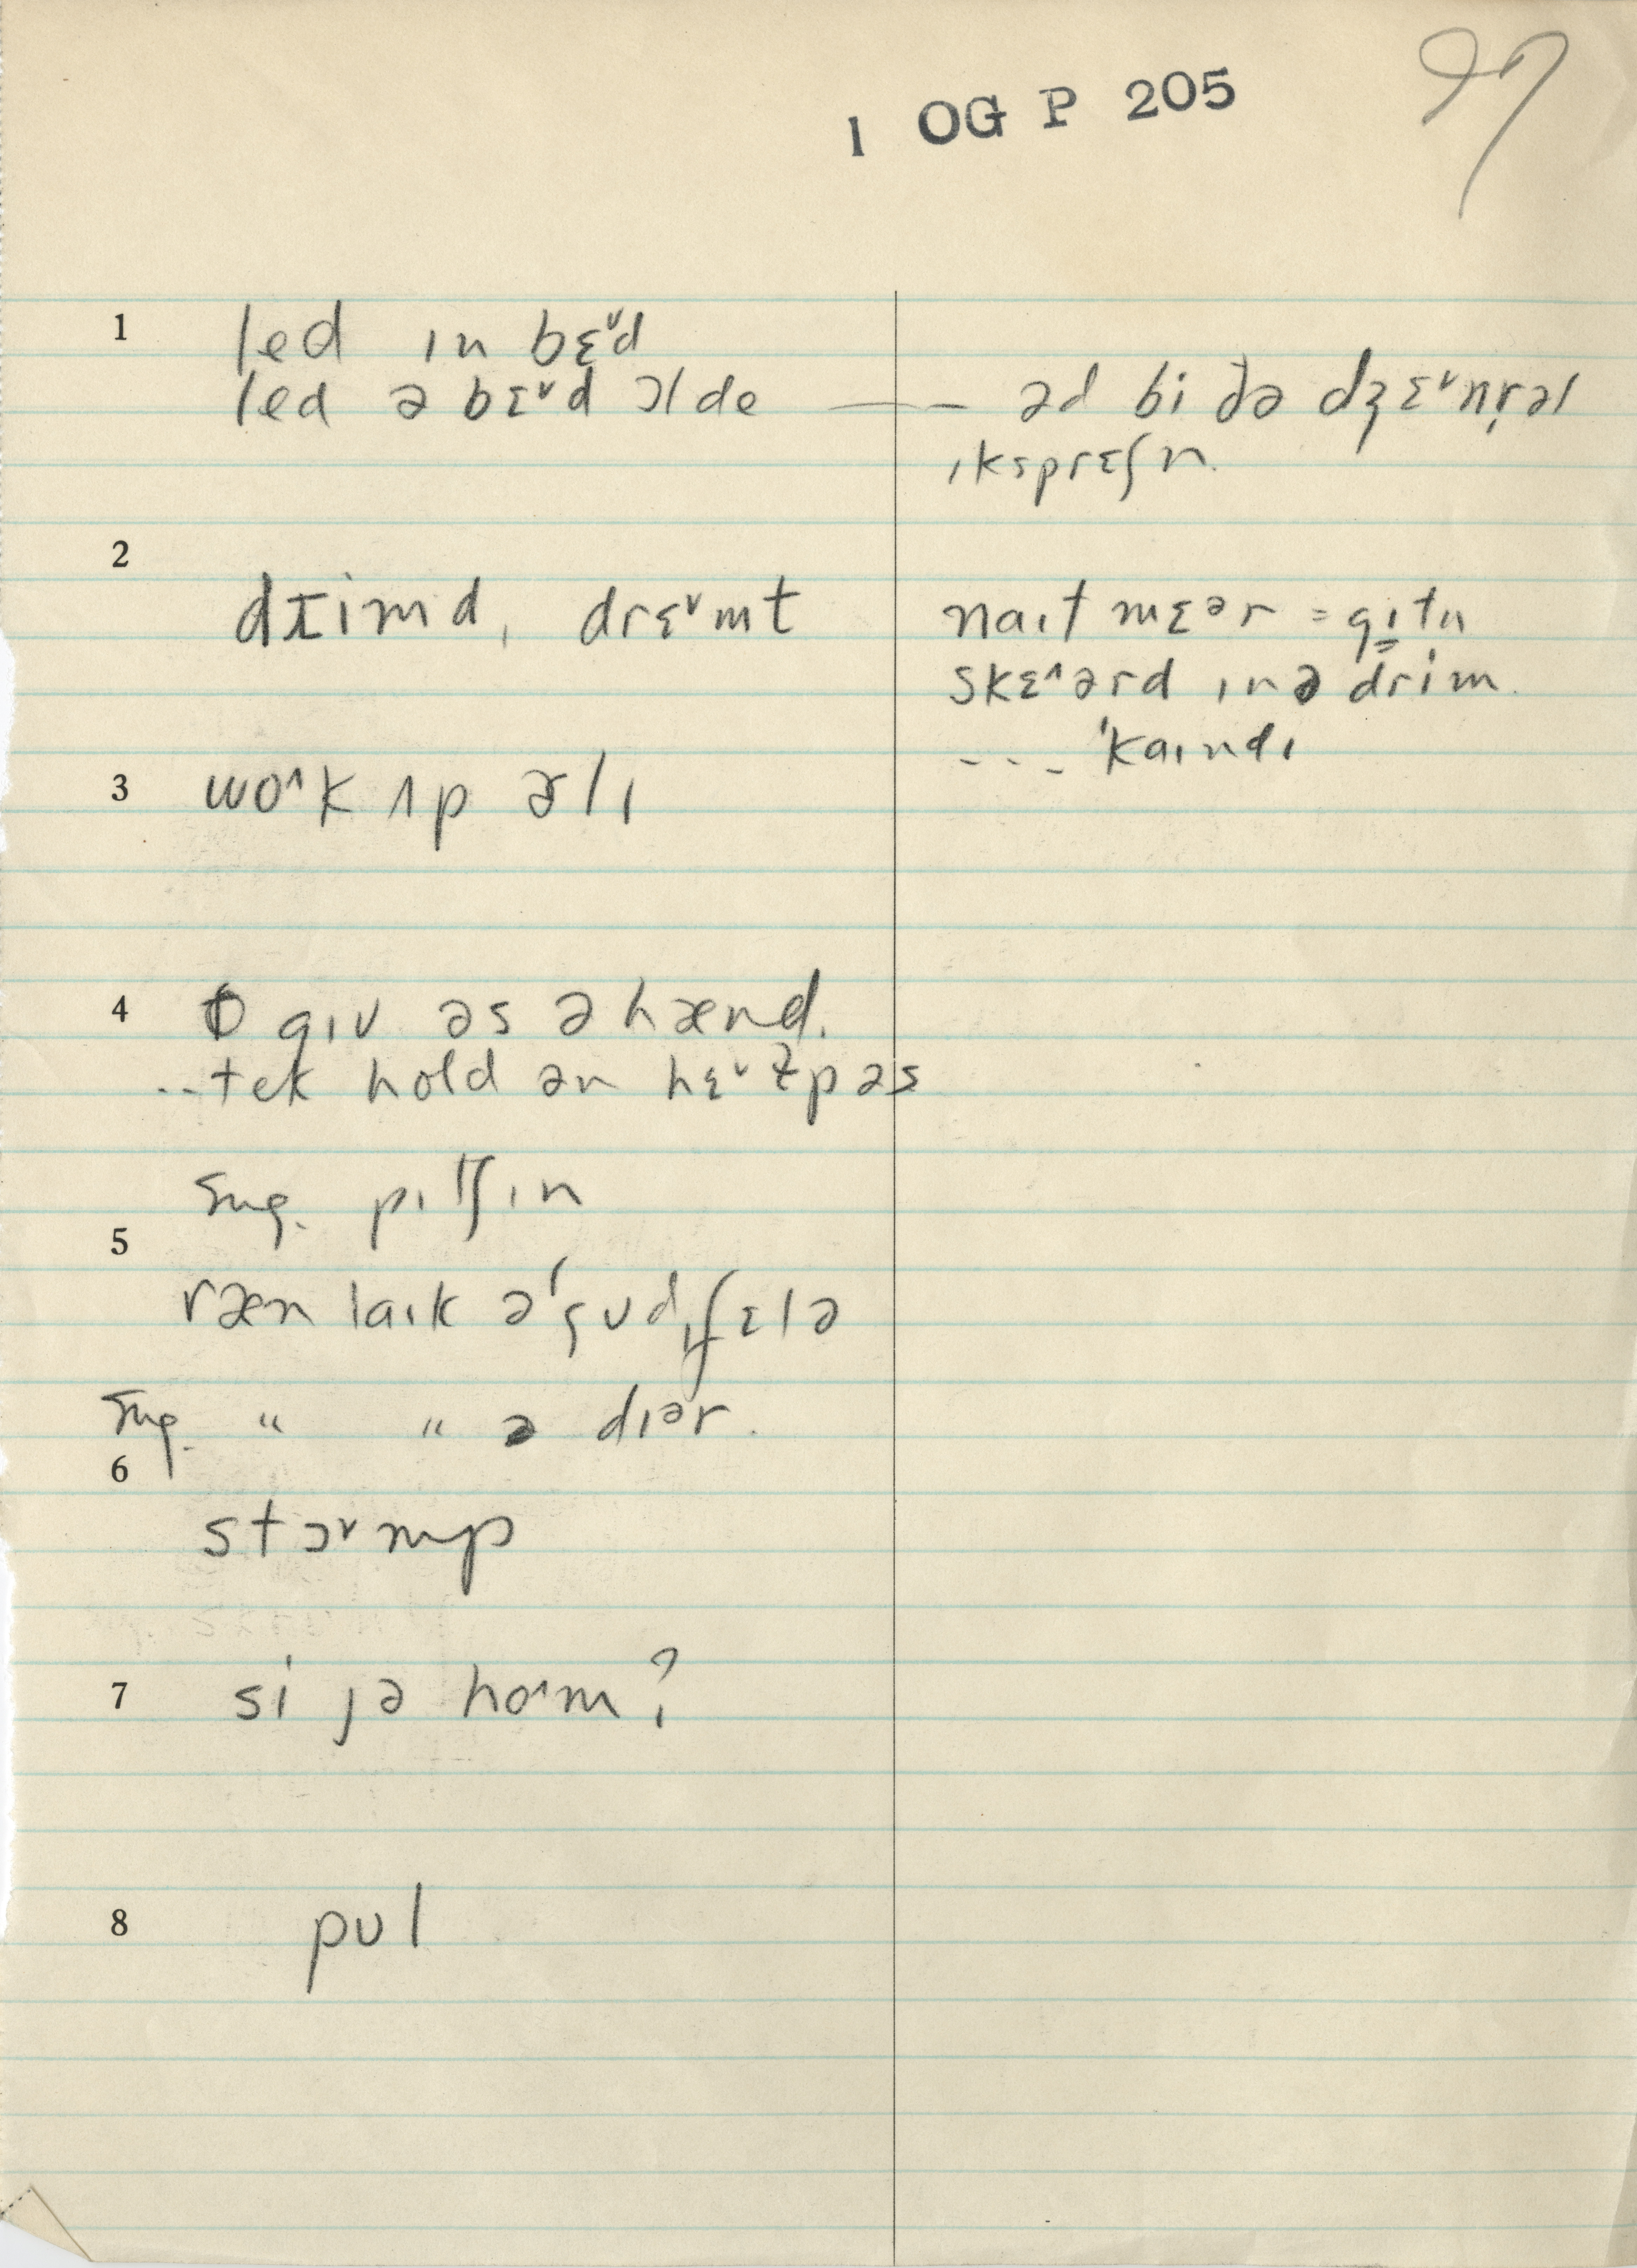 1 OG P 205
97
1 led ɪn bɛ˅d
led ə bɛ˅d ɔl de — əd bi ðə dʒɛ˅nrəl
ɪksprɛʃn.
2
drimd, drɛ˅mt
naɪt mɛər = gɪtn
skɛ˄ərd ɪn ə drim.
--- 'kaɪndɪ
3 wo˄k ʌp ɚlɪ
4 gɪv əs ə hænd.
..tek hold ən hɛ˅lp əs
sug. pɪtʃ ɪn
5
ræn laɪk ə 'gʊd ˌfɛlə
sug. " " ə dɪər.
6
stɔ˅mp
7 si jə ho˄m?
8 pʊl